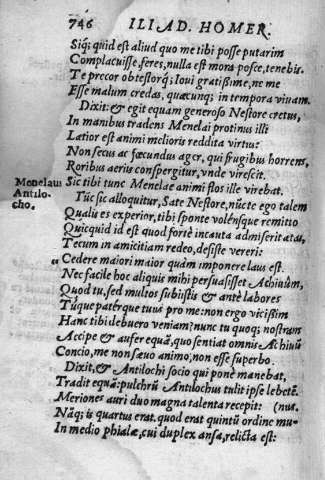 746 ILIAD. HOMER.
Siq́; quid est aliud quo me tibi posse putarim
Complacuisse, feres, nulla est mora posce, tenebis.
Te precor obtestorq́; Ioui gratißime, ne me
Esse malum credas, quæcunq; in tempora viuam.
Dixit: & egit equam generoso Nestore cretus,
In manibus tradens Menelai protinus illi
Latior est animi melioris reddita virtus:
Non secus ac fœcundus ager, qui frugibus horrens,
Roribus aeriis conspergitur, vnde virescit.
Sic tibi tunc Menelae animi flos ille virebat.
Menelau
Antilo-
cho.
Tūc sic alloquitur, Sate Nestore, nūc te ego talem
Qualis es experior, tibi sponte volénsque remitto
Quicquid id est quod fortè incauta admiserit ætas,
Tecum in amicitiam redeo, desiste vereri:
„Cedere maiori maior quàm imponere laus est.
Nec facile hoc aliquis mihi persuasisset Achiuûm,
Quod tu, sed multos subiisti & antè labores
Túque patérque tuus pro me: non ergo vicissim
Hanc tibi debuero veniam? nunc tu quoq; nostram
Accipe & aufer equā, quo sentiat omnis Achiuū
Concio, me non sæuo animo, non esse superbo.
Dixit, & Antilochi socio qui ponè manebat,
Tradit equā: pulchrū Antilochus tulit ipse lebetē.
Meriones auri duo magna talenta recepit: (nus.
Nāq; is quartus erat. quod erat quintū ordine mu-
In medio phialæ, cui duplex ansa, relicta est: